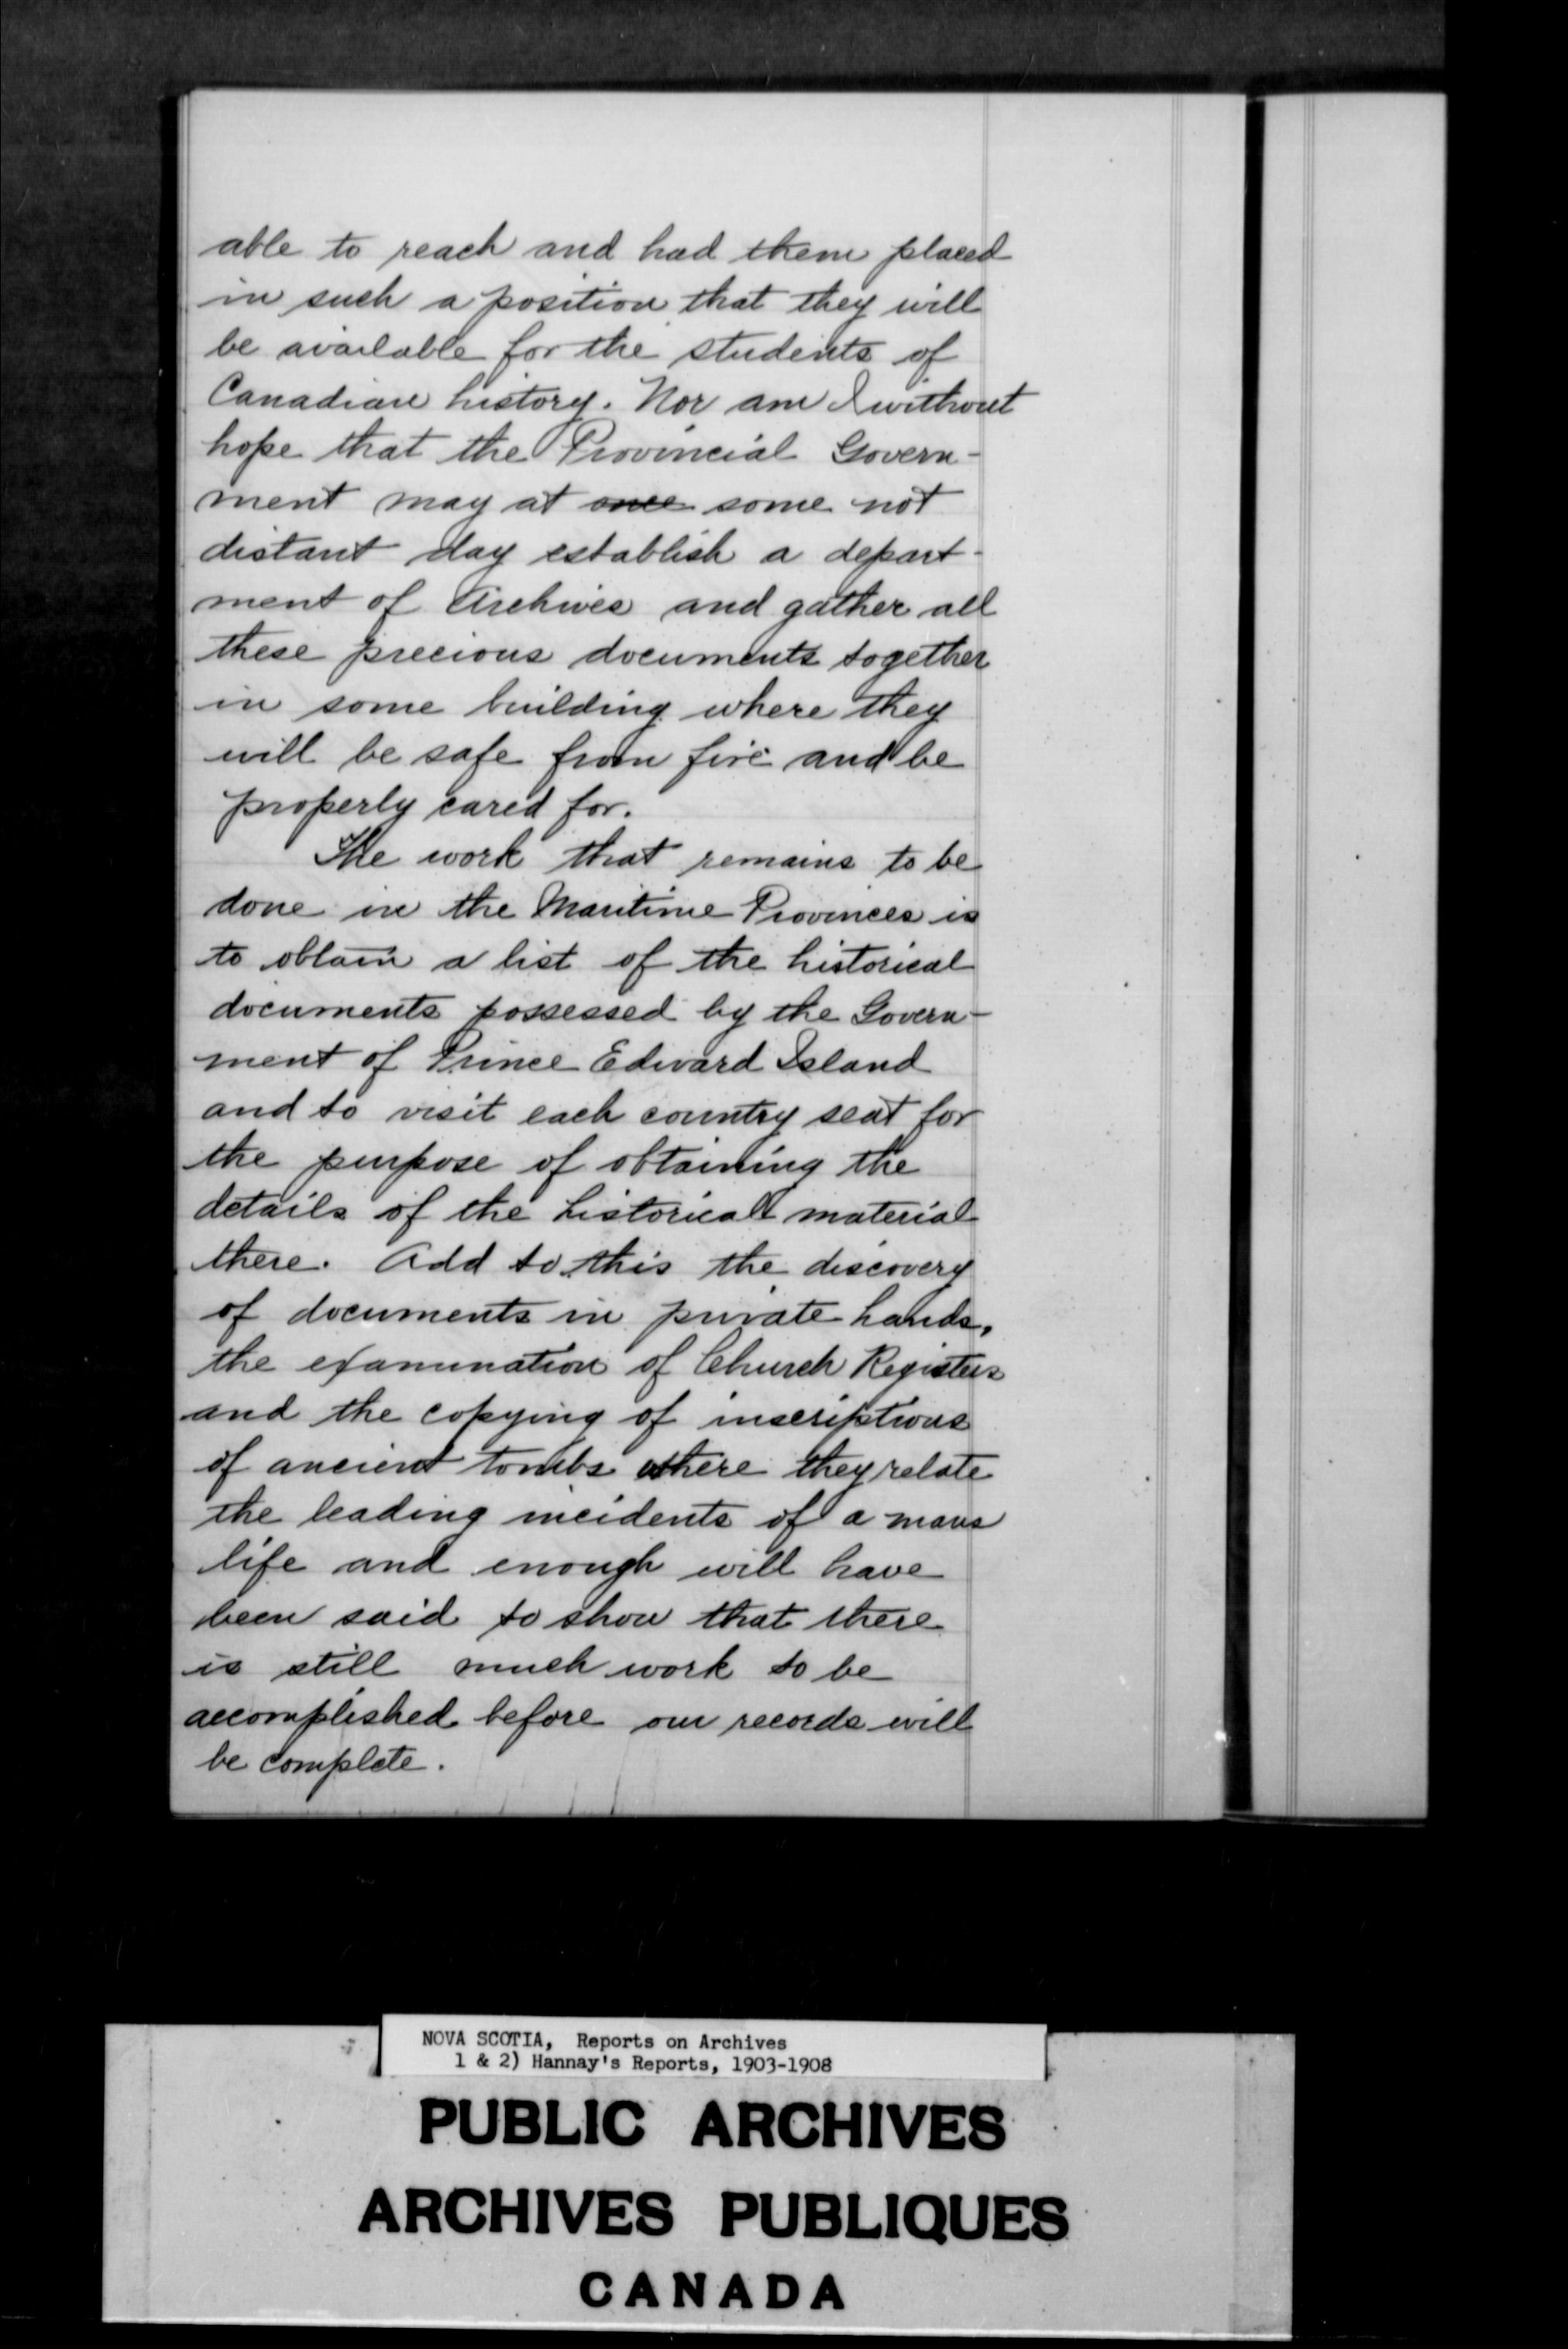 able to reach and had them placed
in such a position that they will
be available for the students of
Canadian history. Nor am I without
hope that the Provincial Govern-
ment may at once some not
distant day establish a depart-
ment of Archives and gather all
these precious documents together
in some building where they
will be safe from fire and be
properly cared for.
The work that remains to be
done in the Maritime Provinces is
to obtain a list of the historical
documents possessed by the Govern-
ment of Prince Edward Island
and to visit each country seat for
the purpose of obtaining the
details of the historical material
there. Add to this the discovery
of documents in private hands,
the examination of Church Registers
and the copying of inscriptions
of ancient tombs where they relate
the leading incidents of a mans
life and enough will have
been said to show that there
is still much work to be
accomplished before our records will
be complete.
NOVA SCOTIA, Reports on Archives
1 & 2) Hannay's Reports, 1903-1908
PUBLIC ARCHIVES
ARCHIVES PUBLIQUES
CANADA